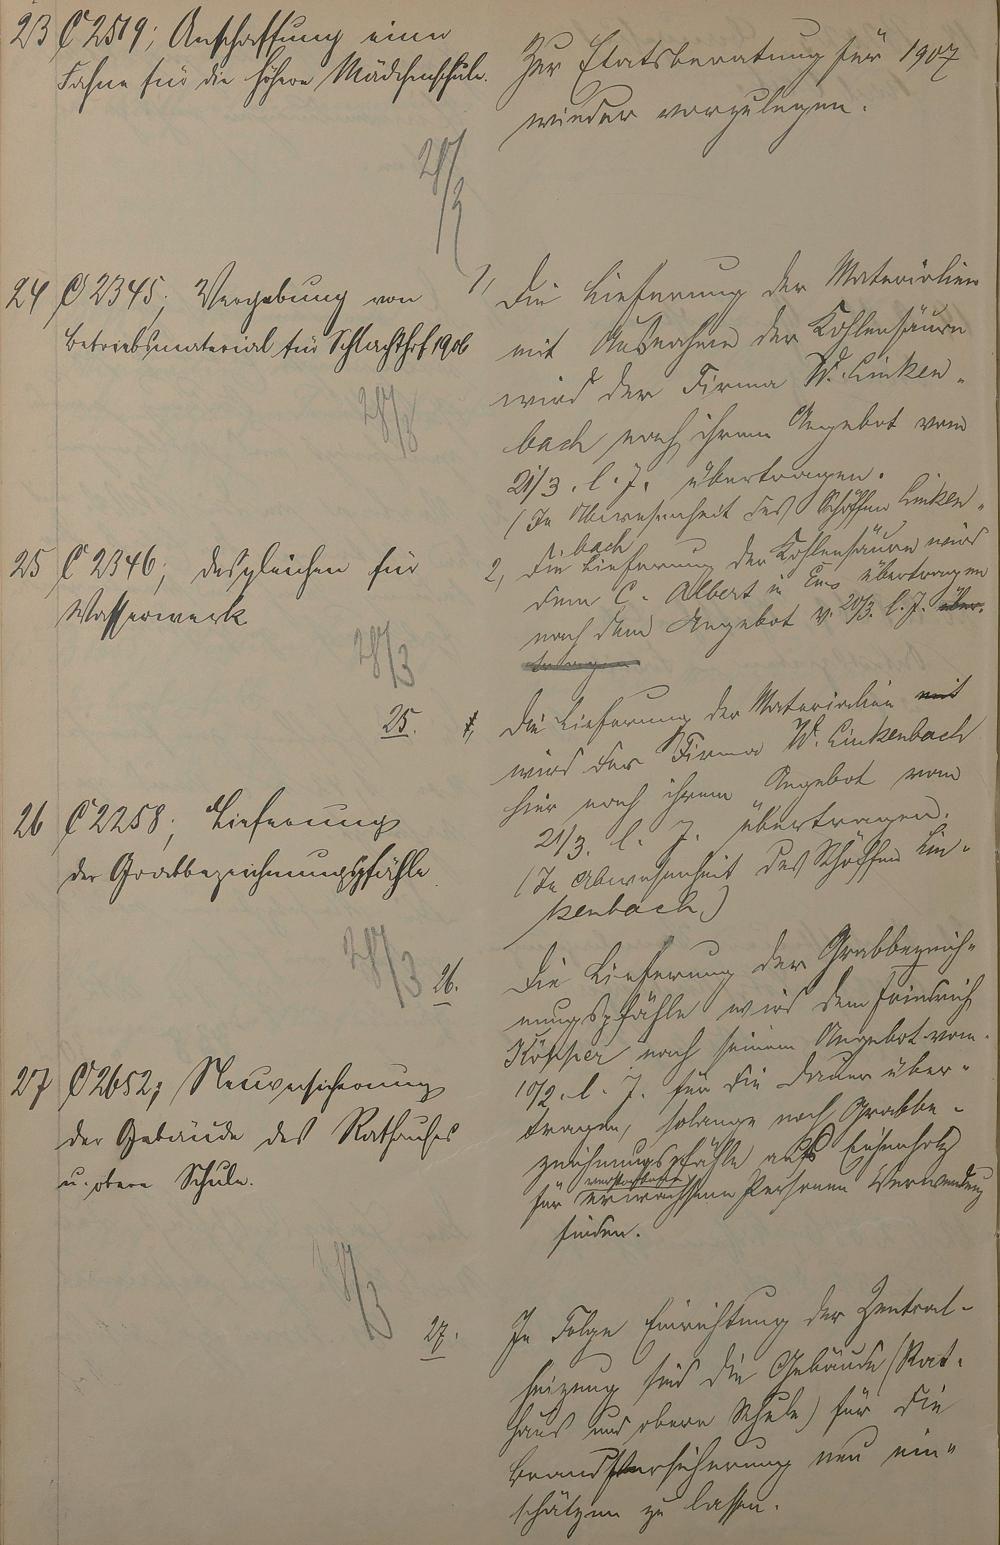 23 C 2519; Anschaffung einer
Fahne für die höhere Mädchenschule.
28/3
Zur Etatsberatung für 1907
wieder vorzulegen.
24 C 2345; Vergebung von
Betriebsmaterial für Schlachthof 1906
28/3
1, Die Lieferung der Materialien
mit Ausnahme der Kohlensäure
wird der Firma W. Linken-
bach nach ihrem Angebot vom
21/3. l. J. übertragen.
(In Abwesenheit des Schöffen Linken-
bach
2, Die Lieferung der Kohlensäure wird
dem C. Albert in Ems übertragen
nach dem Angebot v. 20/3. l. J. über-
tragen
25 C 2346; desgleichen für
Wasserwerk
28/3
25. Die Lieferung der Materialien mit
wird der Firma W. Linkenbach
hier nach ihrem Angebot vom
21/3. l. J. übertragen.
(In Abwesenheit des Schöffen Lin-
kenbach)
26 C 2258; Lieferung
der Grabbezeichnungspfähle
28/3
26. Die Lieferung der Grabbezeich-
nungspfähle wird dem Friedrich
nach seinem Angebot vom
10/2. l. J. für die Dauer über-
tragen, solange noch Grabbe-
zeichnungspfähle aus Eichenholz
für verstorbene erwachsene Personen Verwendung
finden.
27 C 2652; Neuversicherung
der Gebäude des Rathauses
u. obere Schule.
28/3
27. In Folge Einrichtung der Zentral-
heizung sind die Gebäude (Rat-
haus und obere Schule) für die
Brandversicherung neu ein-
schätzen zu lassen.